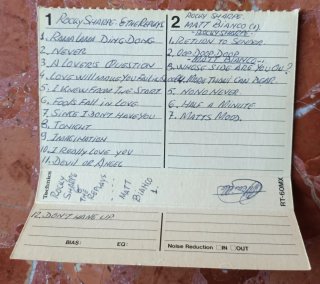 1 ROCKY SHARPE & THE REPLAYS
1. RAMA LAMA DING DONG
2. NEVER
3. A LOVER'S QUESTION
4. LOVE WILL MAKE YOU FAIL IN
5. I KNEW FROM THE START
6. FOOLS FALL IN LOVE
7. SINCE I DON'T HAVE YOU
8. TONIGHT
9. IMAGINATION
10. I REALLY LOVE YOU
11. DEVIL OR ANGEL
2 ROCKY SHARPE.
MATT BIANCO
ROCKY SHARPE:
1. RETURN TO SENDER
2. OOP DOOP
MATT BIANCO
3. WHOSE SIDE ARE YOU ON?
4. MORE THAN I CAN BEAR
5. NO NO NEVER
6. HALF A MINUTE
7. MATTS MOOD.
Technics
ROCKY SHARPE & THE REPLAYS
MATT BIANCO
RT-60MX
12. DON'T HANG UP
BIAS:
EQ:
Noise Reduction IN OUT